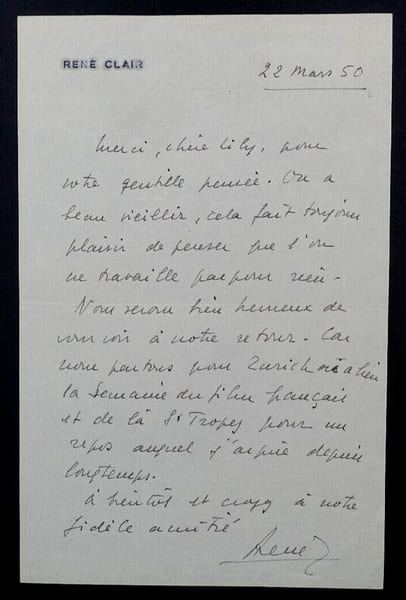 RENÉ CLAIR
22 Mars 50
Merci, chère Lily, pour
votre gentille pensée. On a
beau vieillir, cela fait toujours
plaisir de penser que l'on
ne travaille pas pour rien.
Nous serons bien heureux de
vous voir à notre retour. Car
nous partons pour Zurich où a lieu
la Semaine du film français
et de là St Tropez pour un
repos auquel j'aspire depuis
longtemps.
à bientôt et croyez à notre
fidèle amitié
René